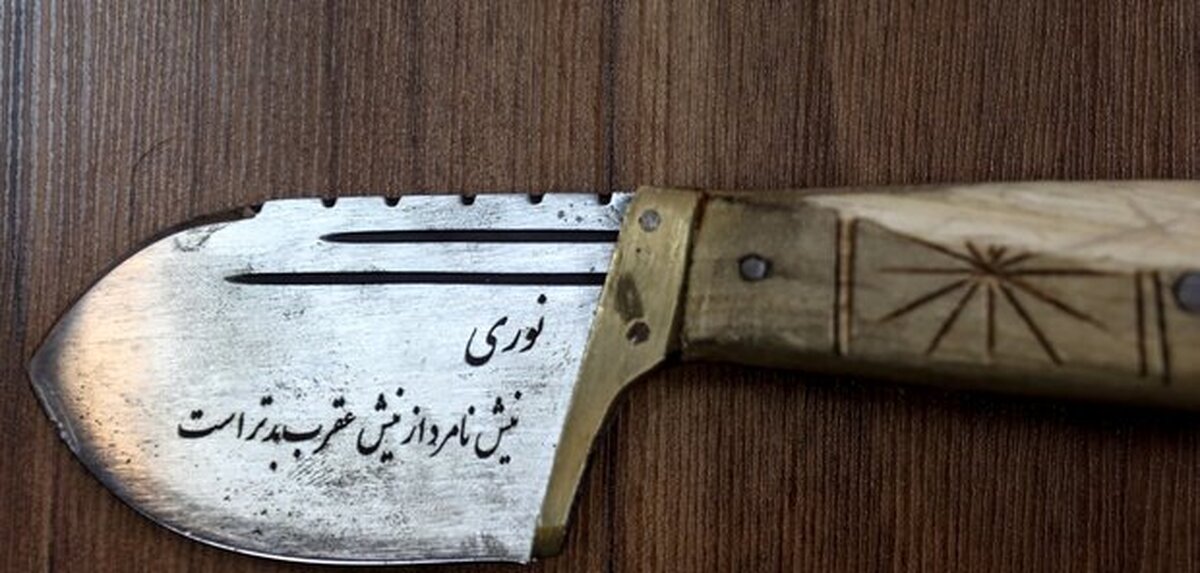 نوری
نیش نامرد از نیش عقرب بدتر است